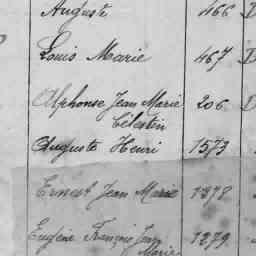 Auguste 466 D
Louis Marie 467 D
Alphonse Jean Marie 206 D
Célestin
Auguste Henri 1573
Ernest Jean Marie 1378
Eugène François Jean 1279
Marie